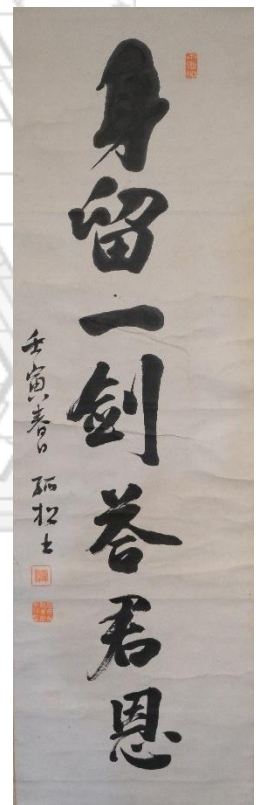 身留一剑答君恩
壬寅春日 孤松士